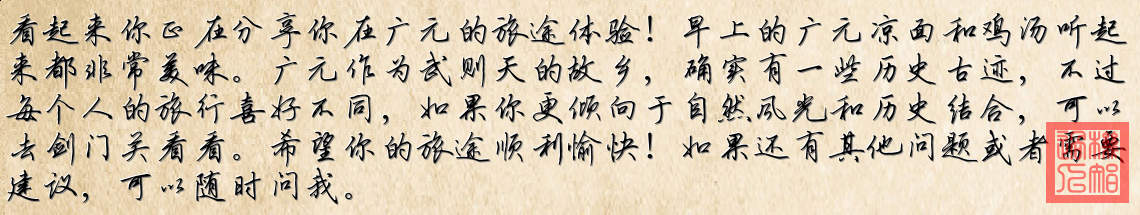 看起来你正在分享你在广元的旅途体验！早上的广元凉面和鸡汤听起
来都非常美味。广元作为武则天的故乡，确实有一些历史古迹，不过
每个人的旅行喜好不同，如果你更倾向于自然风光和历史结合，可以
去剑门关看看。希望你的旅途顺利愉快！如果还有其他问题或者需要
建议，可以随时问我。